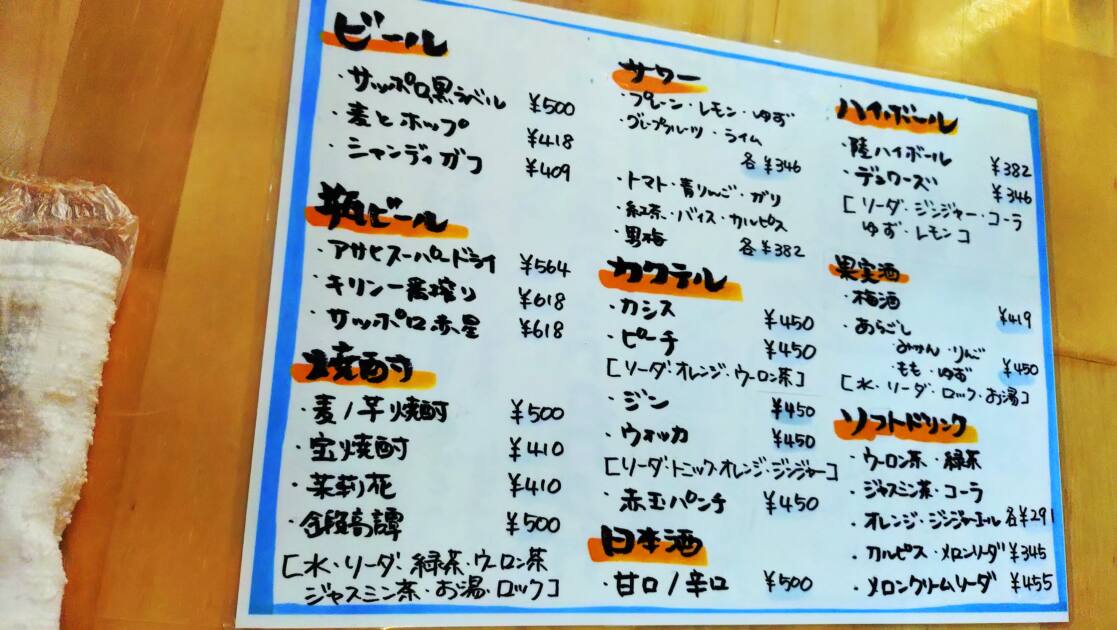 ビール
・サッポロ黒ラベル ¥500
・麦とホップ ¥418
・シャンディガフ ¥409
瓶ビール
・アサヒスーパードライ ¥564
・キリン一番搾り ¥618
・サッポロ赤星 ¥618
焼酎
・麦/芋焼酎 ¥500
・宝焼酎 ¥410
・茉莉花 ¥410
・¥500
[水・ソーダ・緑茶・ウーロン茶
ジャスミン茶・お湯・ロック]
サワー
・プレーン・レモン・ゆず
グレープフルーツ・ライム
各¥346
・トマト・青りんご・ガリ
・紅茶・バイス・カルピス
・男梅 各¥382
カクテル
・カシス ¥450
・ピーチ ¥450
[ソーダ・オレンジ・ウーロン茶]
・ジン ¥450
・ウォッカ ¥450
[ソーダ・トニック・オレンジ・ジンジャー]
・赤玉パンチ ¥450
日本酒
・甘口/辛口 ¥500
ハイボール
・陸ハイボール ¥382
・デュワーズ ¥346
[ソーダ・ジンジャー・コーラ
ゆず・レモン]
果実酒
・梅酒 ¥419
・あらごし
・みかん・りんご
・もも・ゆず ¥450
[水・ソーダ・ロック・お湯]
ソフトドリンク
・ウーロン茶・緑茶
・ジャスミン茶・コーラ
・オレンジ・ジンジャーエール 各¥291
・カルピス・メロンソーダ ¥345
・メロンクリームソーダ ¥455